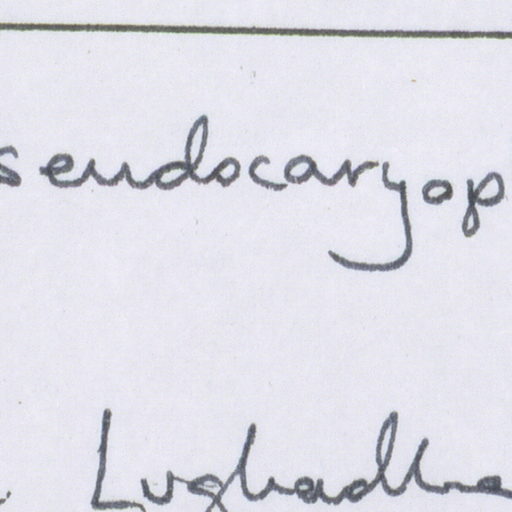 seudocaryop
Lughadha